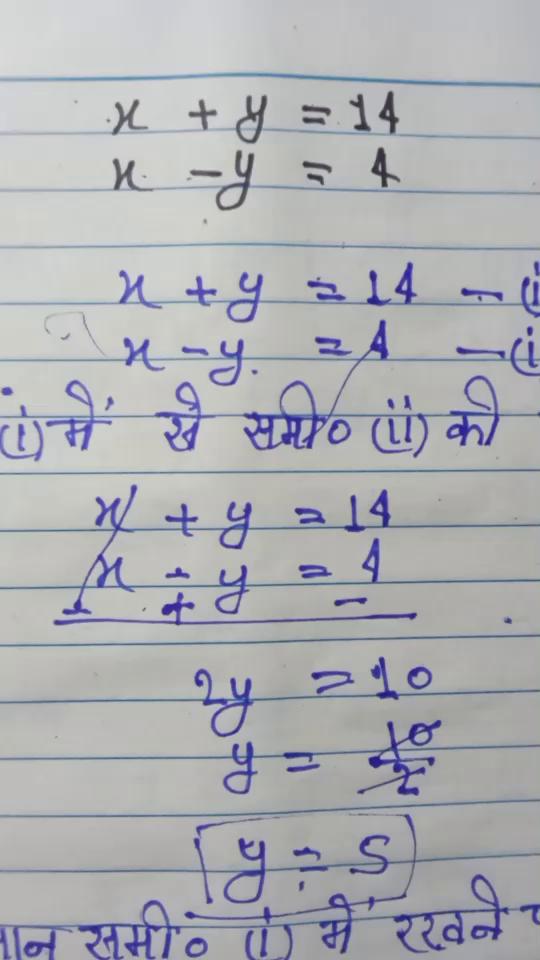 x + y = 14
x - y = 4
x + y = 14 — (i
x - y = 4 — (i
(i) में से समी० (ii) को
x + y = 14
x - y = 4
- + -
2y = 10
y = 10/2
y = 5
समी० (i) में रखने